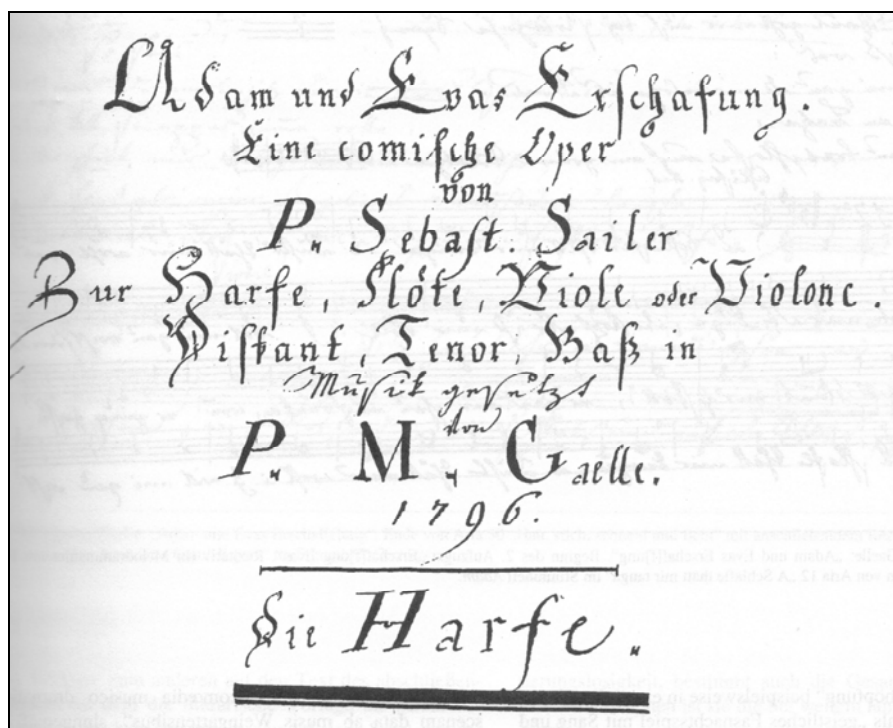 Adam und Evas Erschafung.
Eine comische Oper
von
P. Sebast. Sailer
Zur Harfe, Flöte, Viole oder Violonc.
Diskant, Tenor, Baß in
Musik gesetzt
von
P. M. Gaelle.
1796.
Die Harfe.